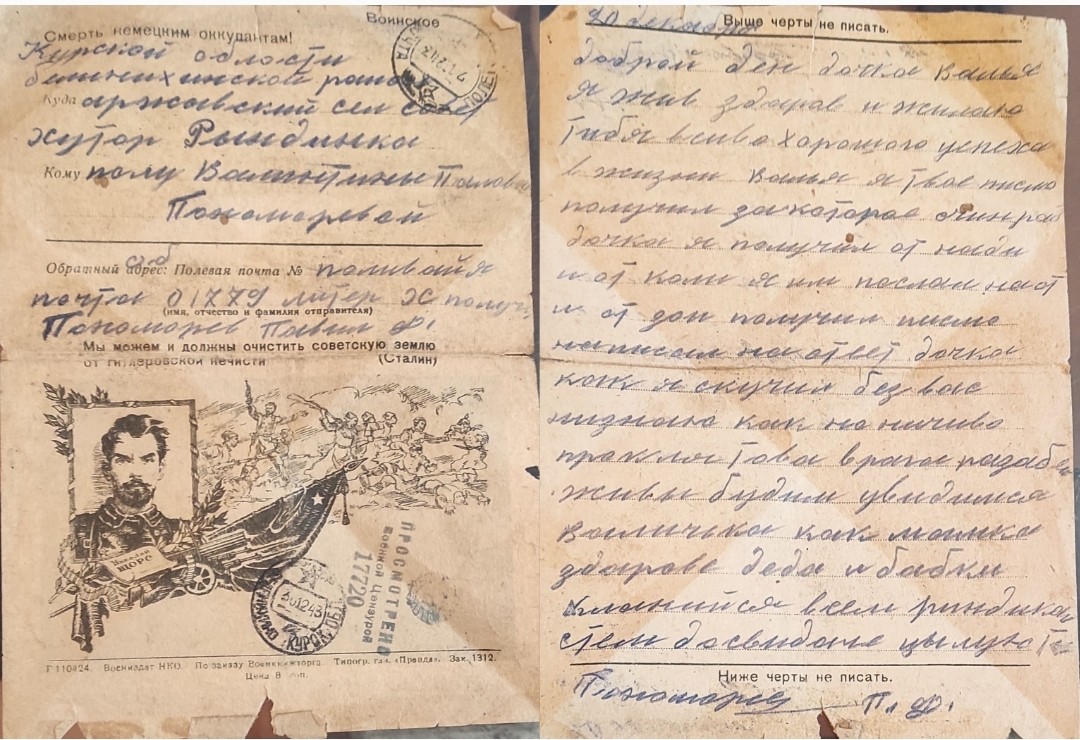 Воинское
Смерть немецким оккупантам!
Курской области
Куда аржавский сел совет
хутор Рындинка
Кому полу Валинтины Павлов
Пономаревой
Обратный адрес: Полевая почта № поливайя
почта 01779 литер Ж получ
(имя, отчество и фамилия отправителя)
Пономарев Павил Ф.
Мы можем и должны очистить советскую землю
от гитлеровской нечисти (Сталин)
Николай
ЩОРС
ПРОСМОТРЕНО
Военной Цензурой
17720
30 12 43
КУРСК. ОБЛ
Г110424. Воениздат НКО. По заказу Военкнижторга. Типогр. газ. «Правда». Зак. 1312.
Цена 8 коп.
20 декабря Выше черты не писать.
добрай ден дочка Валья
я жив здарав и жилаю
тибя всиво харошаго успеха
в жизни Валья я твое писмо
получил за каторае очин рад
дочка я получил от нади
и от коли я им послал на от
и от дон получил писмо
написал на ответ дочка
как я скучил без вас
низнаю как но ничиво
праклятова врага разаб
живы будим увидимся
Валичка как мамка
здарове деда и бабки
кланийся всем риндинка
стем досвидане цылую те
Ниже черты не писать.
Пономарев П. Ф.